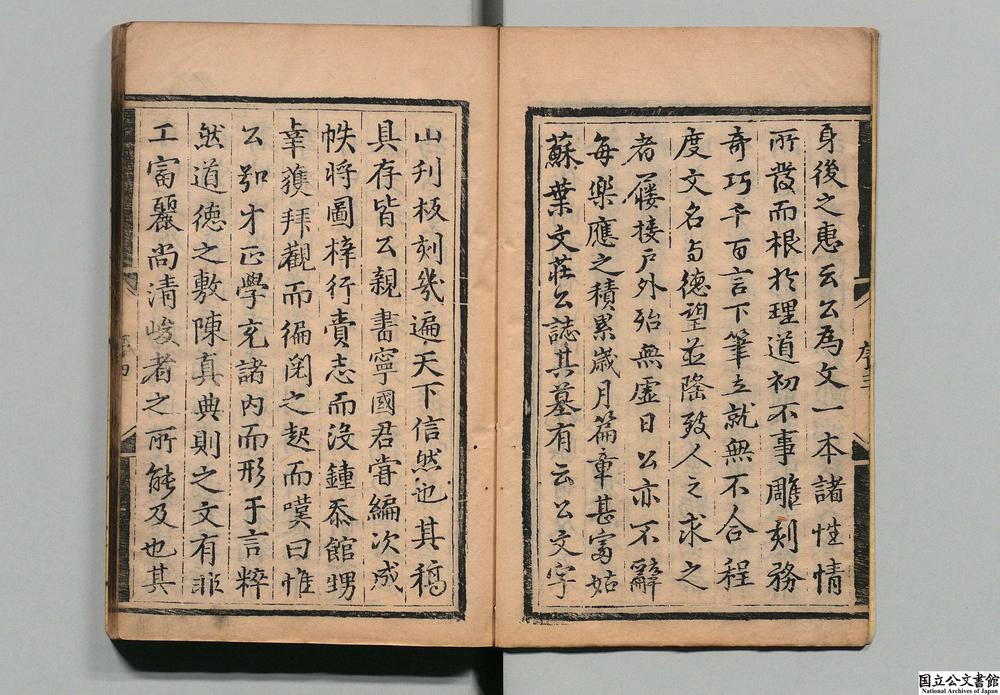 身後之惠云公為文一本諸性情
所發而根於理道初不事雕刻務
奇巧千百言下筆立就無不合程
度文名與德望並隆致人之求之
者屨接戶外殆無虛日公亦不辭
每樂應之積累歲月篇章甚富姑
蘇葉文莊公誌其墓有云公文字
序三
山刋板刻幾遍天下信然也其稿
具存皆公親書寧國君嘗編次成
帙將圖梓行賫志而沒鍾忝館甥
幸獲拜觀而徧閱之起而嘆曰惟
公卲才正學充諸內而形于言粹
然道德之敷陳真典則之文有非
工富麗尚清峻者之所能及也其
序四
国立公文書館
National Archives of Japan